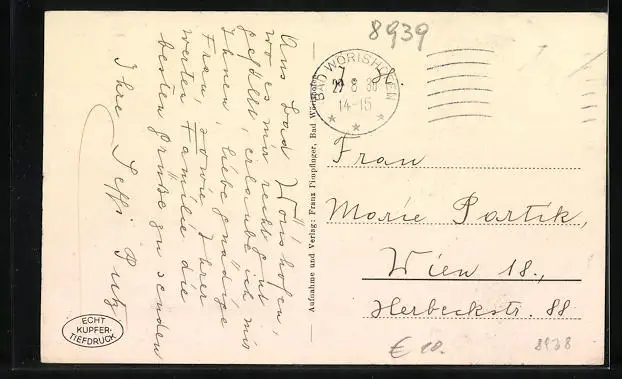 Aus Bad Wörishofen,
wo es mir recht gut
gefällt, erlaube ich mir
Ihnen, liebe gnädige
Frau, sowie Ihrer
werten Familie die
besten Grüße zu senden
Ihre Seffi Putz
ECHT
KUPFER-
TIEFDRUCK
Aufnahme und Verlag: Franz Pimpfinger, Bad Wörishofen
8939
BAD WÖRISHOFEN
14-15
Frau
Marie Partik,
Wien 18.,
Herbeckstr. 88
€ 10.
8938